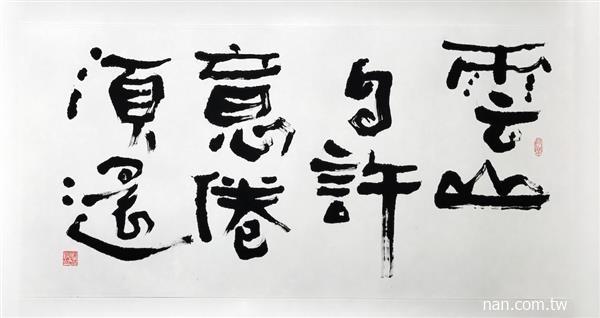 雲山
自許
意倦
須還
nan.com.tw